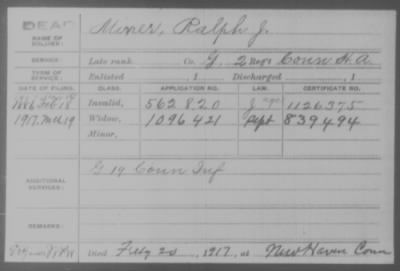 DEAD
NAME OF SOLDIER: Miner, Ralph J.
SERVICE: Late rank Co. G, 2 Reg't Conn H.A.
TERM OF SERVICE: Enlisted , 1 Discharged , 1
DATE OF FILING. CLASS. APPLICATION NO. LAW. CERTIFICATE NO.
18 Invalid, 562820 1126375
1917. Mch 19 Widow, 1096421 Sept 839494
Minor,
ADDITIONAL SERVICES: G 19 Conn Inf
REMARKS:
Died 1917, at New Haven Conn